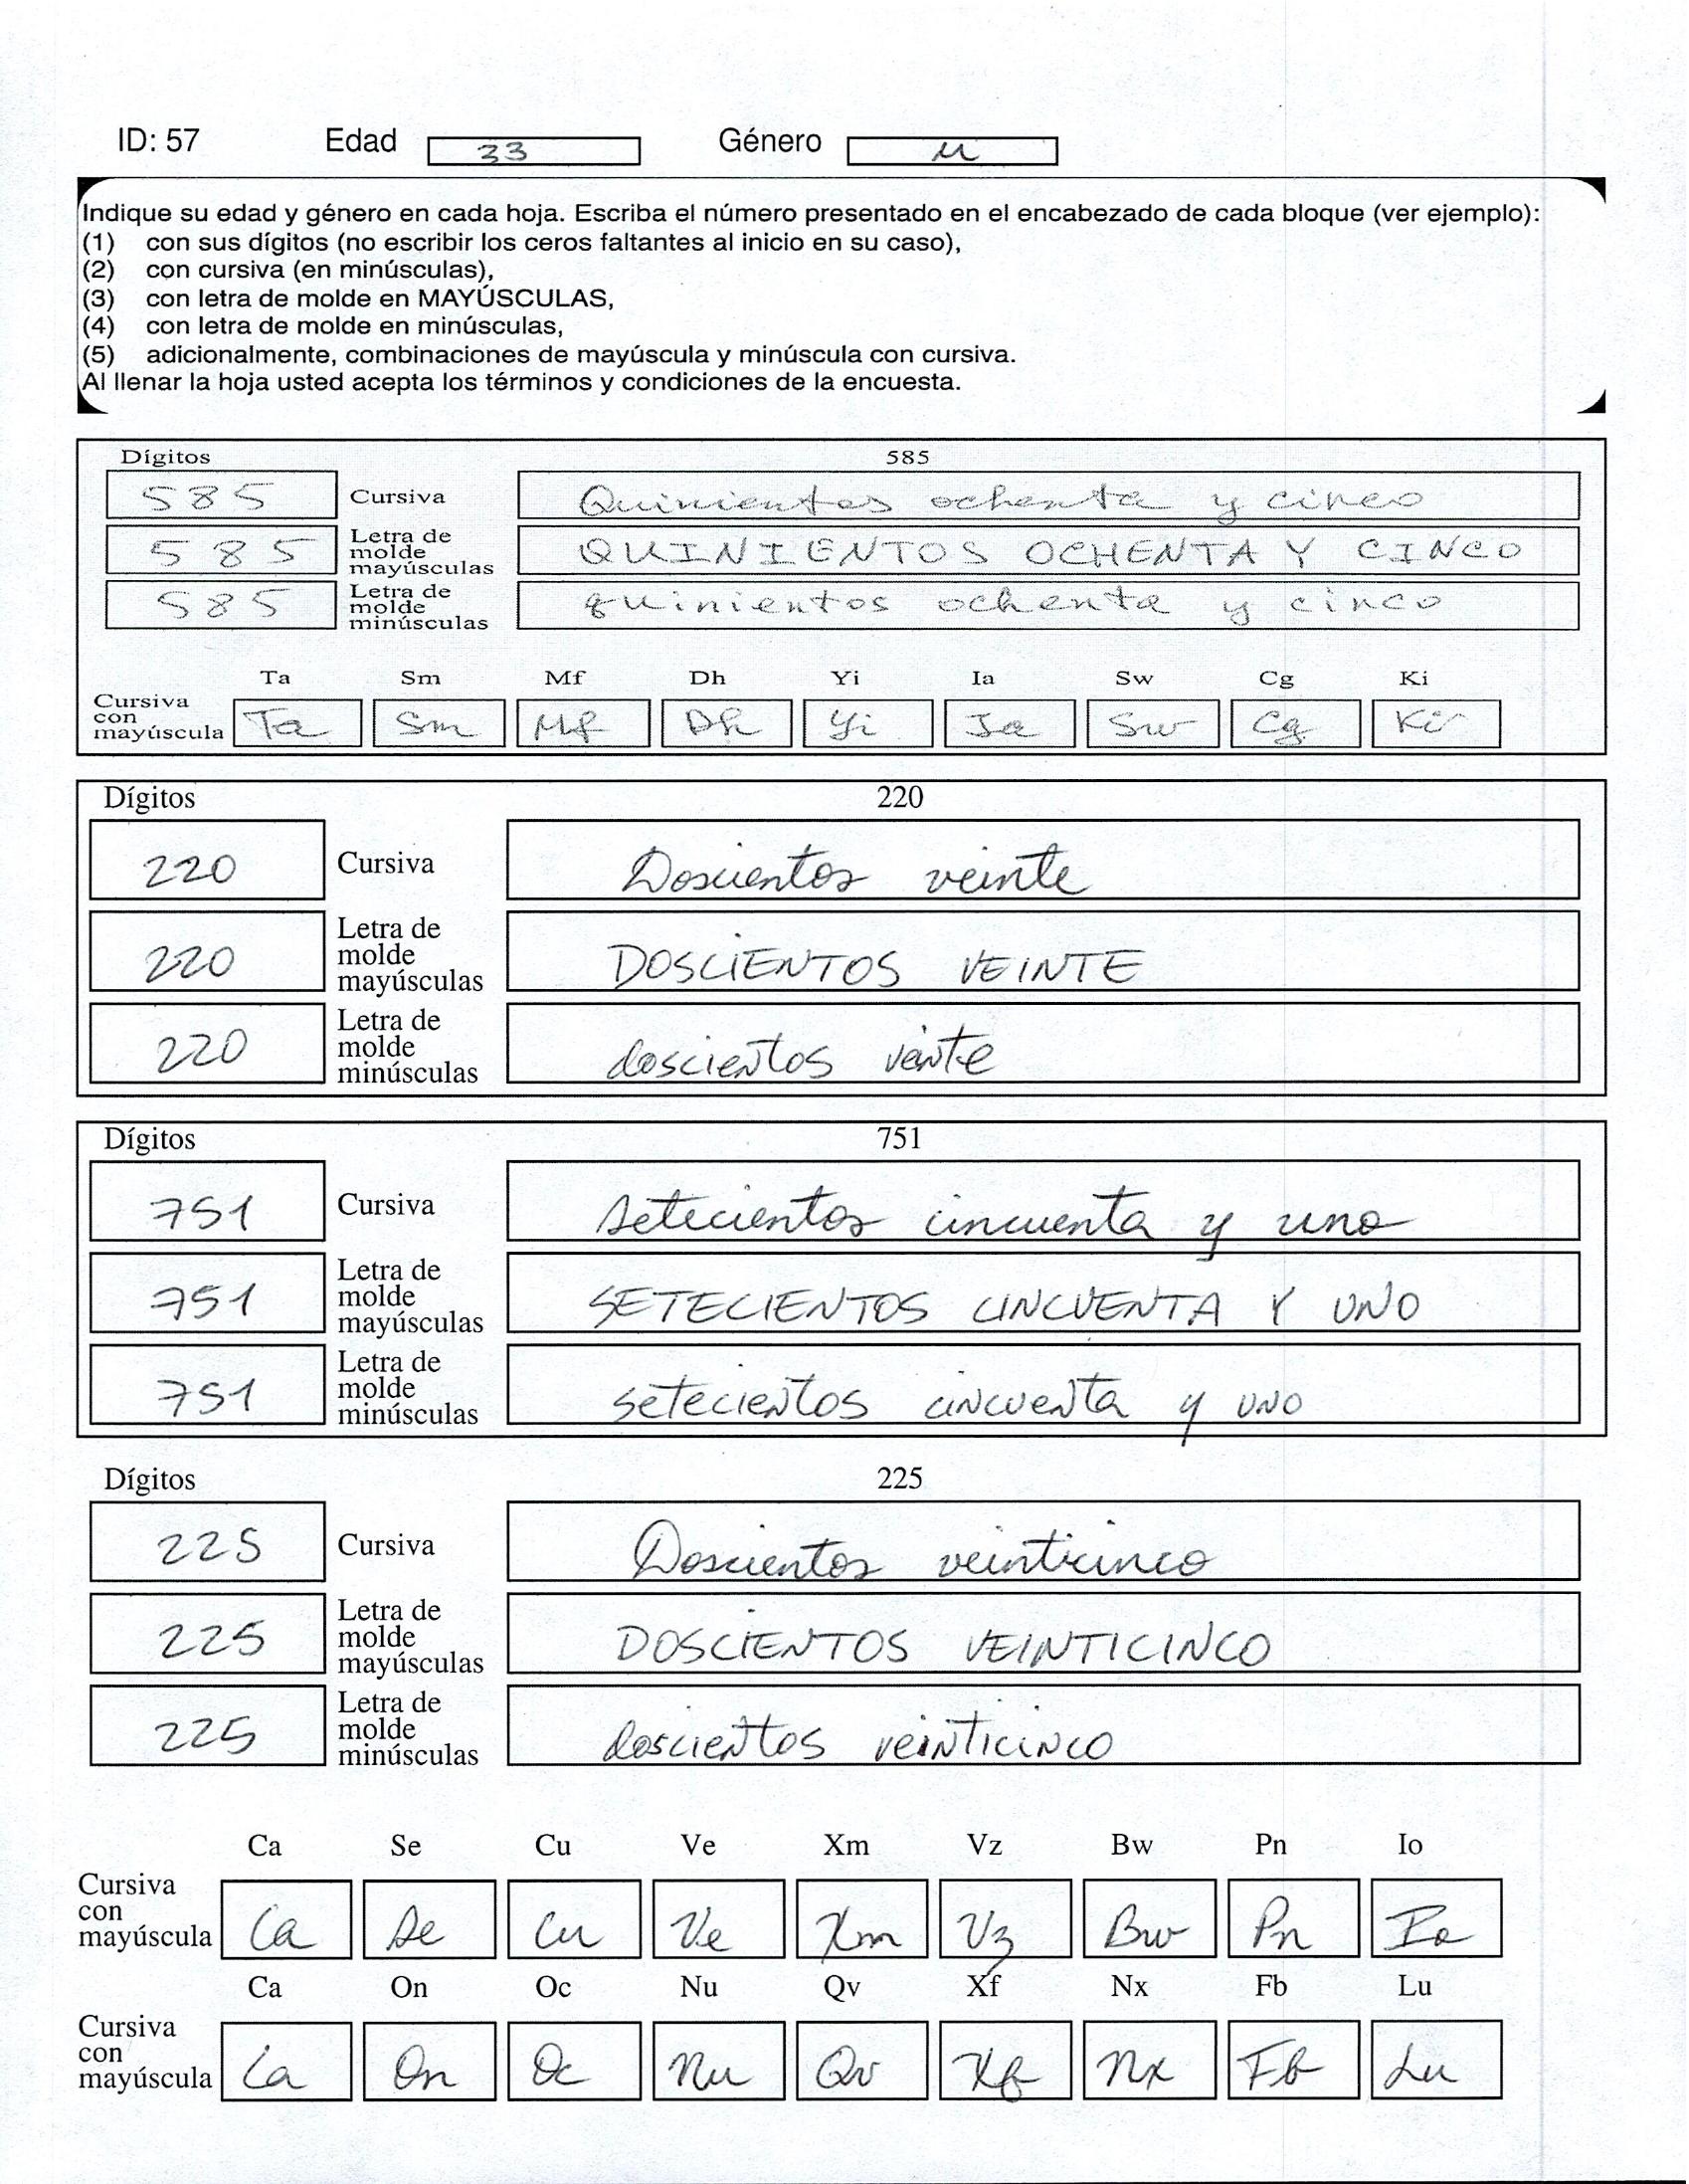 ID: 57 Edad 33 Género M
Indique su edad y género en cada hoja. Escriba el número presentado en el encabezado de cada bloque (ver ejemplo):
(1) con sus dígitos (no escribir los ceros faltantes al inicio en su caso),
(2) con cursiva (en minúsculas),
(3) con letra de molde en MAYÚSCULAS,
(4) con letra de molde en minúsculas,
(5) adicionalmente, combinaciones de mayúscula y minúscula con cursiva.
Al llenar la hoja usted acepta los términos y condiciones de la encuesta.
Dígitos 585
585 Cursiva Quinientos ochenta y cinco
585 Letra de molde mayúsculas QUINIENTOS OCHENTA Y CINCO
585 Letra de molde minúsculas quinientos ochenta y cinco
Ta Sm Mf Dh Yi Ia Sw Cg Ki
Cursiva con mayúscula Ta Sm Mf Dh Yi Ia Sw Cg Ki
Dígitos 220
220 Cursiva Doscientos veinte
220 Letra de molde mayúsculas DOSCIENTOS VEINTE
220 Letra de molde minúsculas doscientos veinte
Dígitos 751
751 Cursiva setecientos cincuenta y uno
751 Letra de molde mayúsculas SETECIENTOS CINCUENTA Y UNO
751 Letra de molde minúsculas setecientos cincuenta y uno
Dígitos 225
225 Cursiva Doscientos veinticinco
225 Letra de molde mayúsculas DOSCIENTOS VEINTICINCO
225 Letra de molde minúsculas doscientos veinticinco
Ca Se Cu Ve Xm Vz Bw Pn Io
Cursiva con mayúscula Ca Se Cu Ve Xm Vz Bw Pn Io
Ca On Oc Nu Qv Xf Nx Fb Lu
Cursiva con mayúscula Ca On Oc Nu Qv Xf Nx Fb Lu